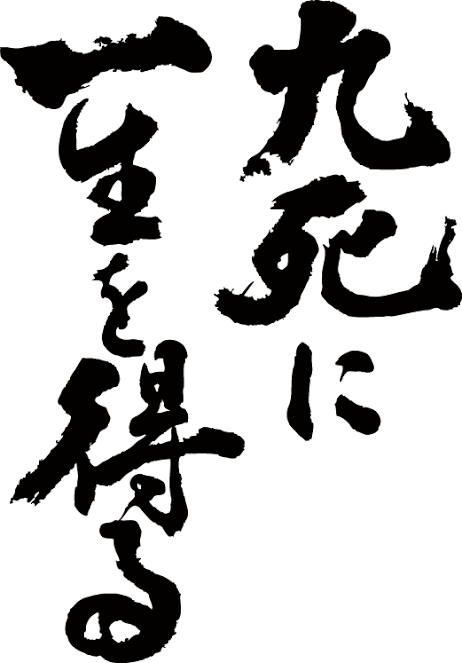 九死に
一生を得る